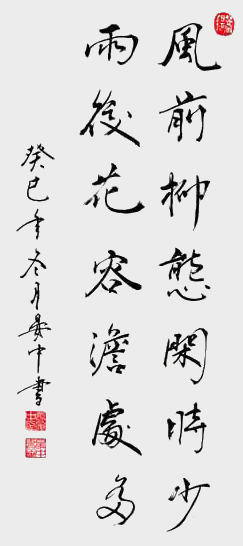 風前柳態閑時少
雨後花容澹處多
癸巳年冬月晏中書